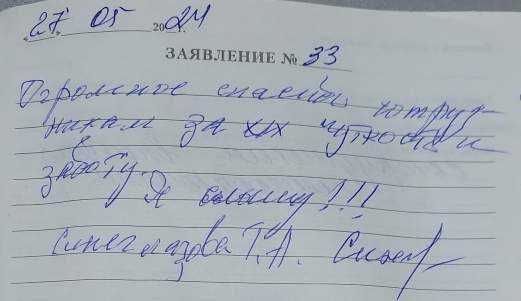 27 05 2024.
ЗАЯВЛЕНИЕ № 33
Огромное спасибо, сотруд-
никам за их чуткость и
заботу.
Я слышу!!!
Синеглазова Т.А.